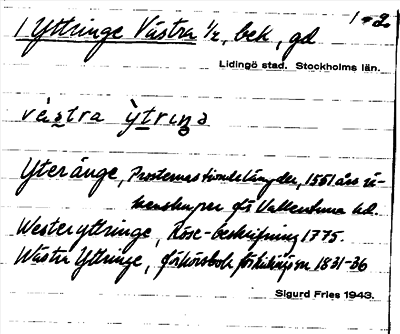 1 Yttringe Västra 1/2, bek, gd 1-2.
Lidingö stad. Stockholms län.
västra ỳtrinə
Yteränge, Prosternas tiondelängder, 1551 års rä-
kenskaper för Vallentuna hd.
Westeryttringe, Röse-beskrifning 1775.
Wästra Yttringe, 1831-36
Sigurd Fries 1943.